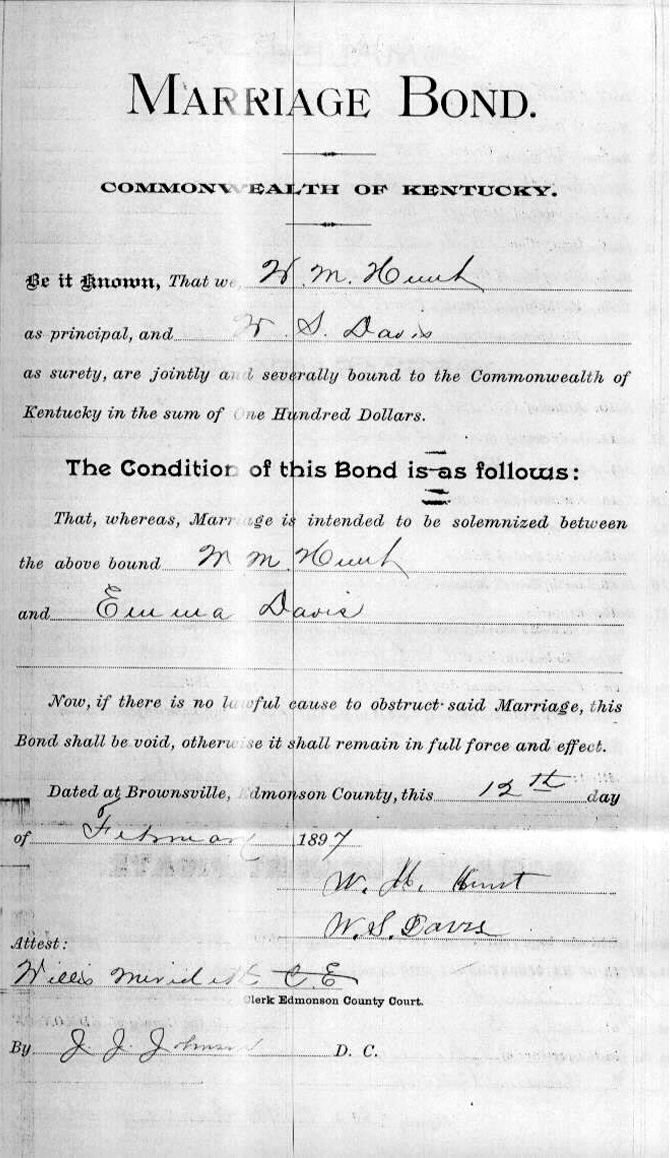 MARRIAGE BOND.
COMMONWEALTH OF KENTUCKY.
Be it Known, That we, W. M. Hunt
as principal, and W. S. Davis
as surety, are jointly and severally bound to the Commonwealth of
Kentucky in the sum of One Hundred Dollars.
The Condition of this Bond is as follows:
That, whereas, Marriage is intended to be solemnized between
the above bound W M Hunt
and Emma Davis
Now, if there is no lawful cause to obstruct said Marriage, this
Bond shall be void, otherwise it shall remain in full force and effect.
Dated at Brownsville, Edmonson County, this 12th day
of February 1897
W. M. Hunt
W. S. Davis
Attest:
Willis Meredith
Clerk Edmonson County Court.
By J. J. Johnson D. C.